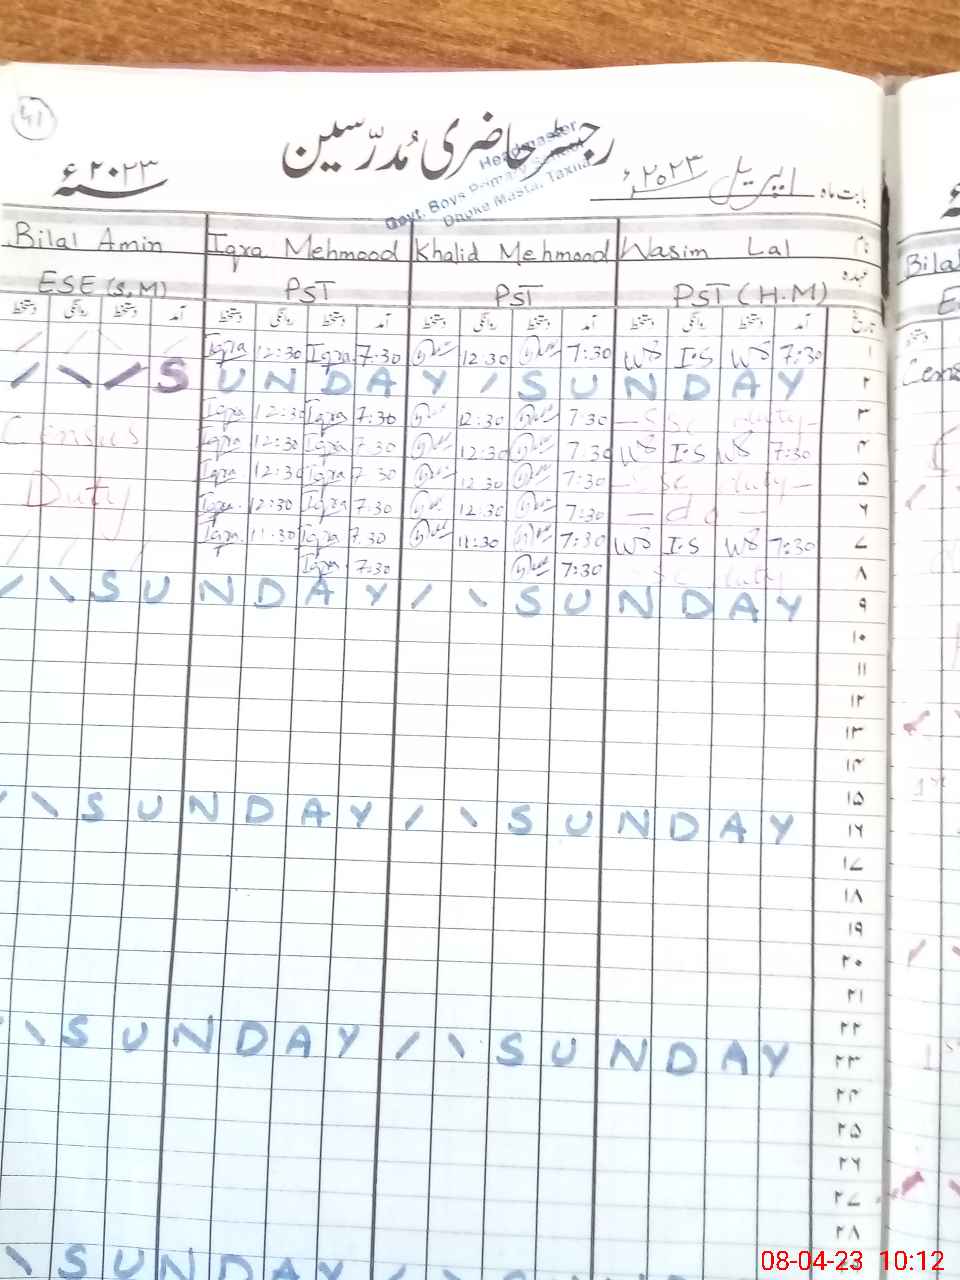 41
رجسٹر حاضری مُدرّسین
Headmaster
Govt. Boys Primary School
Dhoke Masta, Taxila
بابت ماہ اپریل سنہ ۲۰۲۳ء
سنہ ۲۰۲۳ء
نام Wasim Lal Khalid Mehmood Iqra Mehmood Bilal Amin
عہدہ PST (H.M) PST PST ESE (S.M)
تاریخ آمد دستخط روانگی دستخط آمد دستخط روانگی دستخط آمد دستخط روانگی دستخط آمد دستخط روانگی دستخط
Iqra 12:30 Iqra 7:30 12:30 7:30 WS I.S WS 7:30 ۱
SUNDAY / SUNDAY ۲
Iqra 12:30 Iqra 7:30 12:30 7:30 duty ۳
Census Iqra 12:30 Iqra 7:30 12:30 7:30 WS I.S WS 7:30 ۴
Iqra 12:30 Iqra 7:30 12:30 7:30 duty ۵
Duty Iqra 12:30 Iqra 7:30 12:30 7:30 — do — ۶
Iqra 11:30 Iqra 7:30 11:30 7:30 WS I.S WS 7:30 ۷
Iqra 7:30 7:30 duty ۸
/ \ SUNDAY / \ SUNDAY ۹
۱۰
۱۱
۱۲
۱۳
۱۴
۱۵
/ \ SUNDAY / \ SUNDAY ۱۶
۱۷
۱۸
۱۹
۲۰
۲۱
۲۲
\ SUNDAY / \ SUNDAY ۲۳
۲۴
۲۵
۲۶
۲۷
۲۸
\ SUNDAY
Bilal
08-04-23 10:12